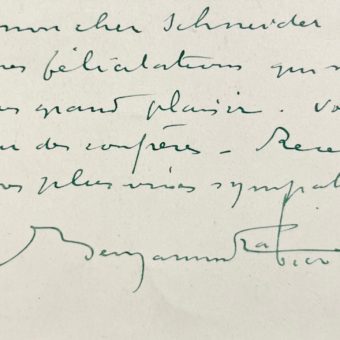 mon cher Schneider
es félicitations qui
us grand plaisir. Vo
u des confrères - Rece
os plus vives sympat
Benjamin Rabier